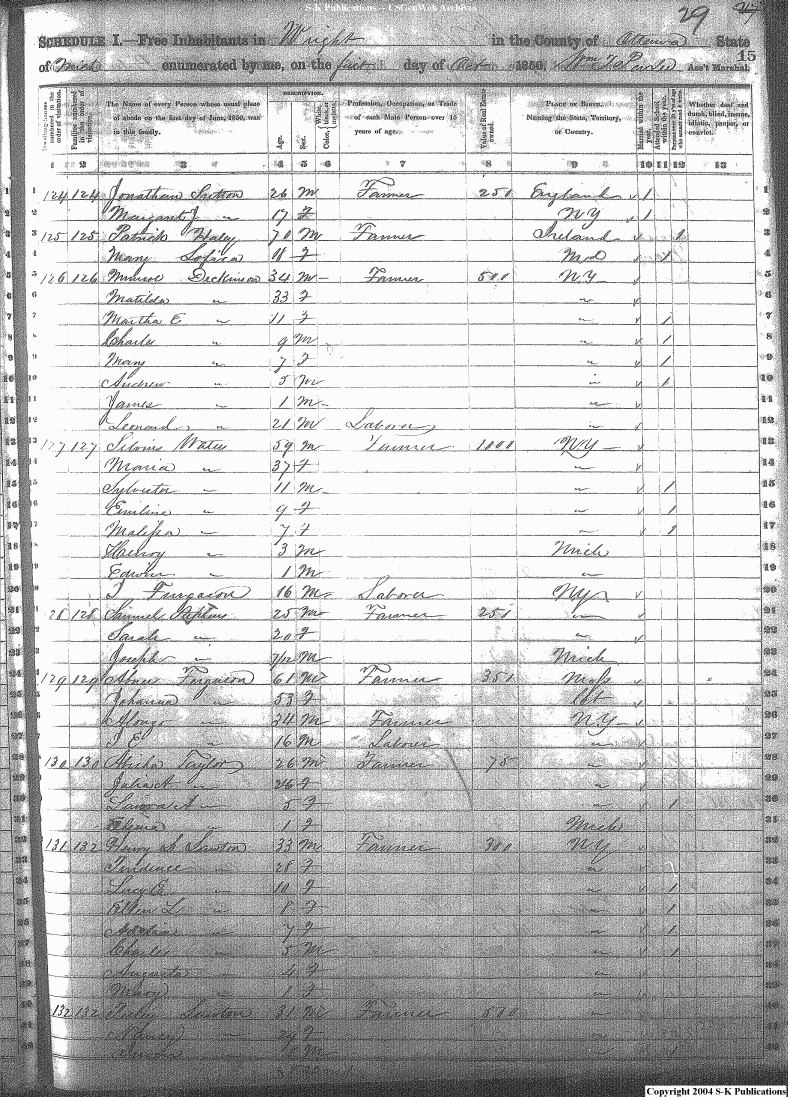 S-K Publications - USGenWeb Archives
29
SCHEDULE I.—Free Inhabitants in Wright in the County of Ottawa State
of Mich enumerated by me, on the first day of Oct 1850. Ass't Marshal. 15
DESCRIPTION.
Dwelling-houses numbered in the order of visitation. Families numbered in the order of visitation. The Name of every Person whose usual place of abode on the first day of June, 1850, was in this family. Age. Sex. Color, White, black, or mulatto. Profession, Occupation, or Trade of each Male Person over 15 years of age. Value of Real Estate owned. Place of Birth. Naming the State, Territory, or Country. Married within the year. Attended School within the year. Persons over 20 y'rs of age who cannot read & write. Whether deaf and dumb, blind, insane, idiotic, pauper, or convict.
1 2 3 4 5 6 7 8 9 10 11 12 13
1 124 124 Jonathan Sutton 26 M Farmer 250 England 1 1
2 Margaret J " 17 F NY 1 2
3 125 125 Patrick Haley 70 M Farmer Ireland 1 3
4 Mary 18 F 1 4
5 126 126 Munroe Dickinson 34 M Farmer 500 N.Y 5
6 Matilda " 33 F " 6
7 Martha E " 11 F " 1 7
8 Charles " 9 M " 1 8
9 Mary " 7 F " 1 9
10 Andrew " 5 M " 1 10
11 James " 1 M " 11
12 Leonard " 21 M Laborer " 12
13 127 127 Waters 59 M Farmer 1000 N.Y 13
14 Maria " 37 F " 14
15 Sylvester " 11 M " 1 15
16 Emiline " 9 F " 1 16
17 Malissa " 7 F " 1 17
18 Henry " 3 M Mich 18
19 Edwin " 1 M " 19
20 Furgason 16 M Laborer NY 20
21 28 128 Samuel Stephens 25 M Farmer 251 " 21
22 Sarah " 20 F " 22
23 Joseph " 7/12 M Mich 23
24 129 129 Abner Ferguson 61 M Farmer 351 Mass 24
25 Johanna " 53 F 25
26 Alonzo " 24 M Farmer N.Y 26
27 J E " 16 M Laborer " 27
28 130 130 Taylor 26 M Farmer 75 " 28
29 Julia A " 26 F " 29
30 Laura A " 5 F " 1 30
31 1 F Mich 31
32 131 132 Henry S Lawton 33 M Farmer 900 NY 32
33 Prudence " 28 F " 33
34 Lucy E " 10 F " 1 34
35 Ellen L " 8 F " 1 35
36 " 7 F " 1 36
37 Charles " 5 M " 1 37
38 Augusta " 4 F " 38
39 Mary " 1 F " 39
40 132 132 Lawton 31 M Farmer 500 " 40
41 Nancy " 29 F " 41
42 M " 1 42
Copyright 2004 S-K Publications